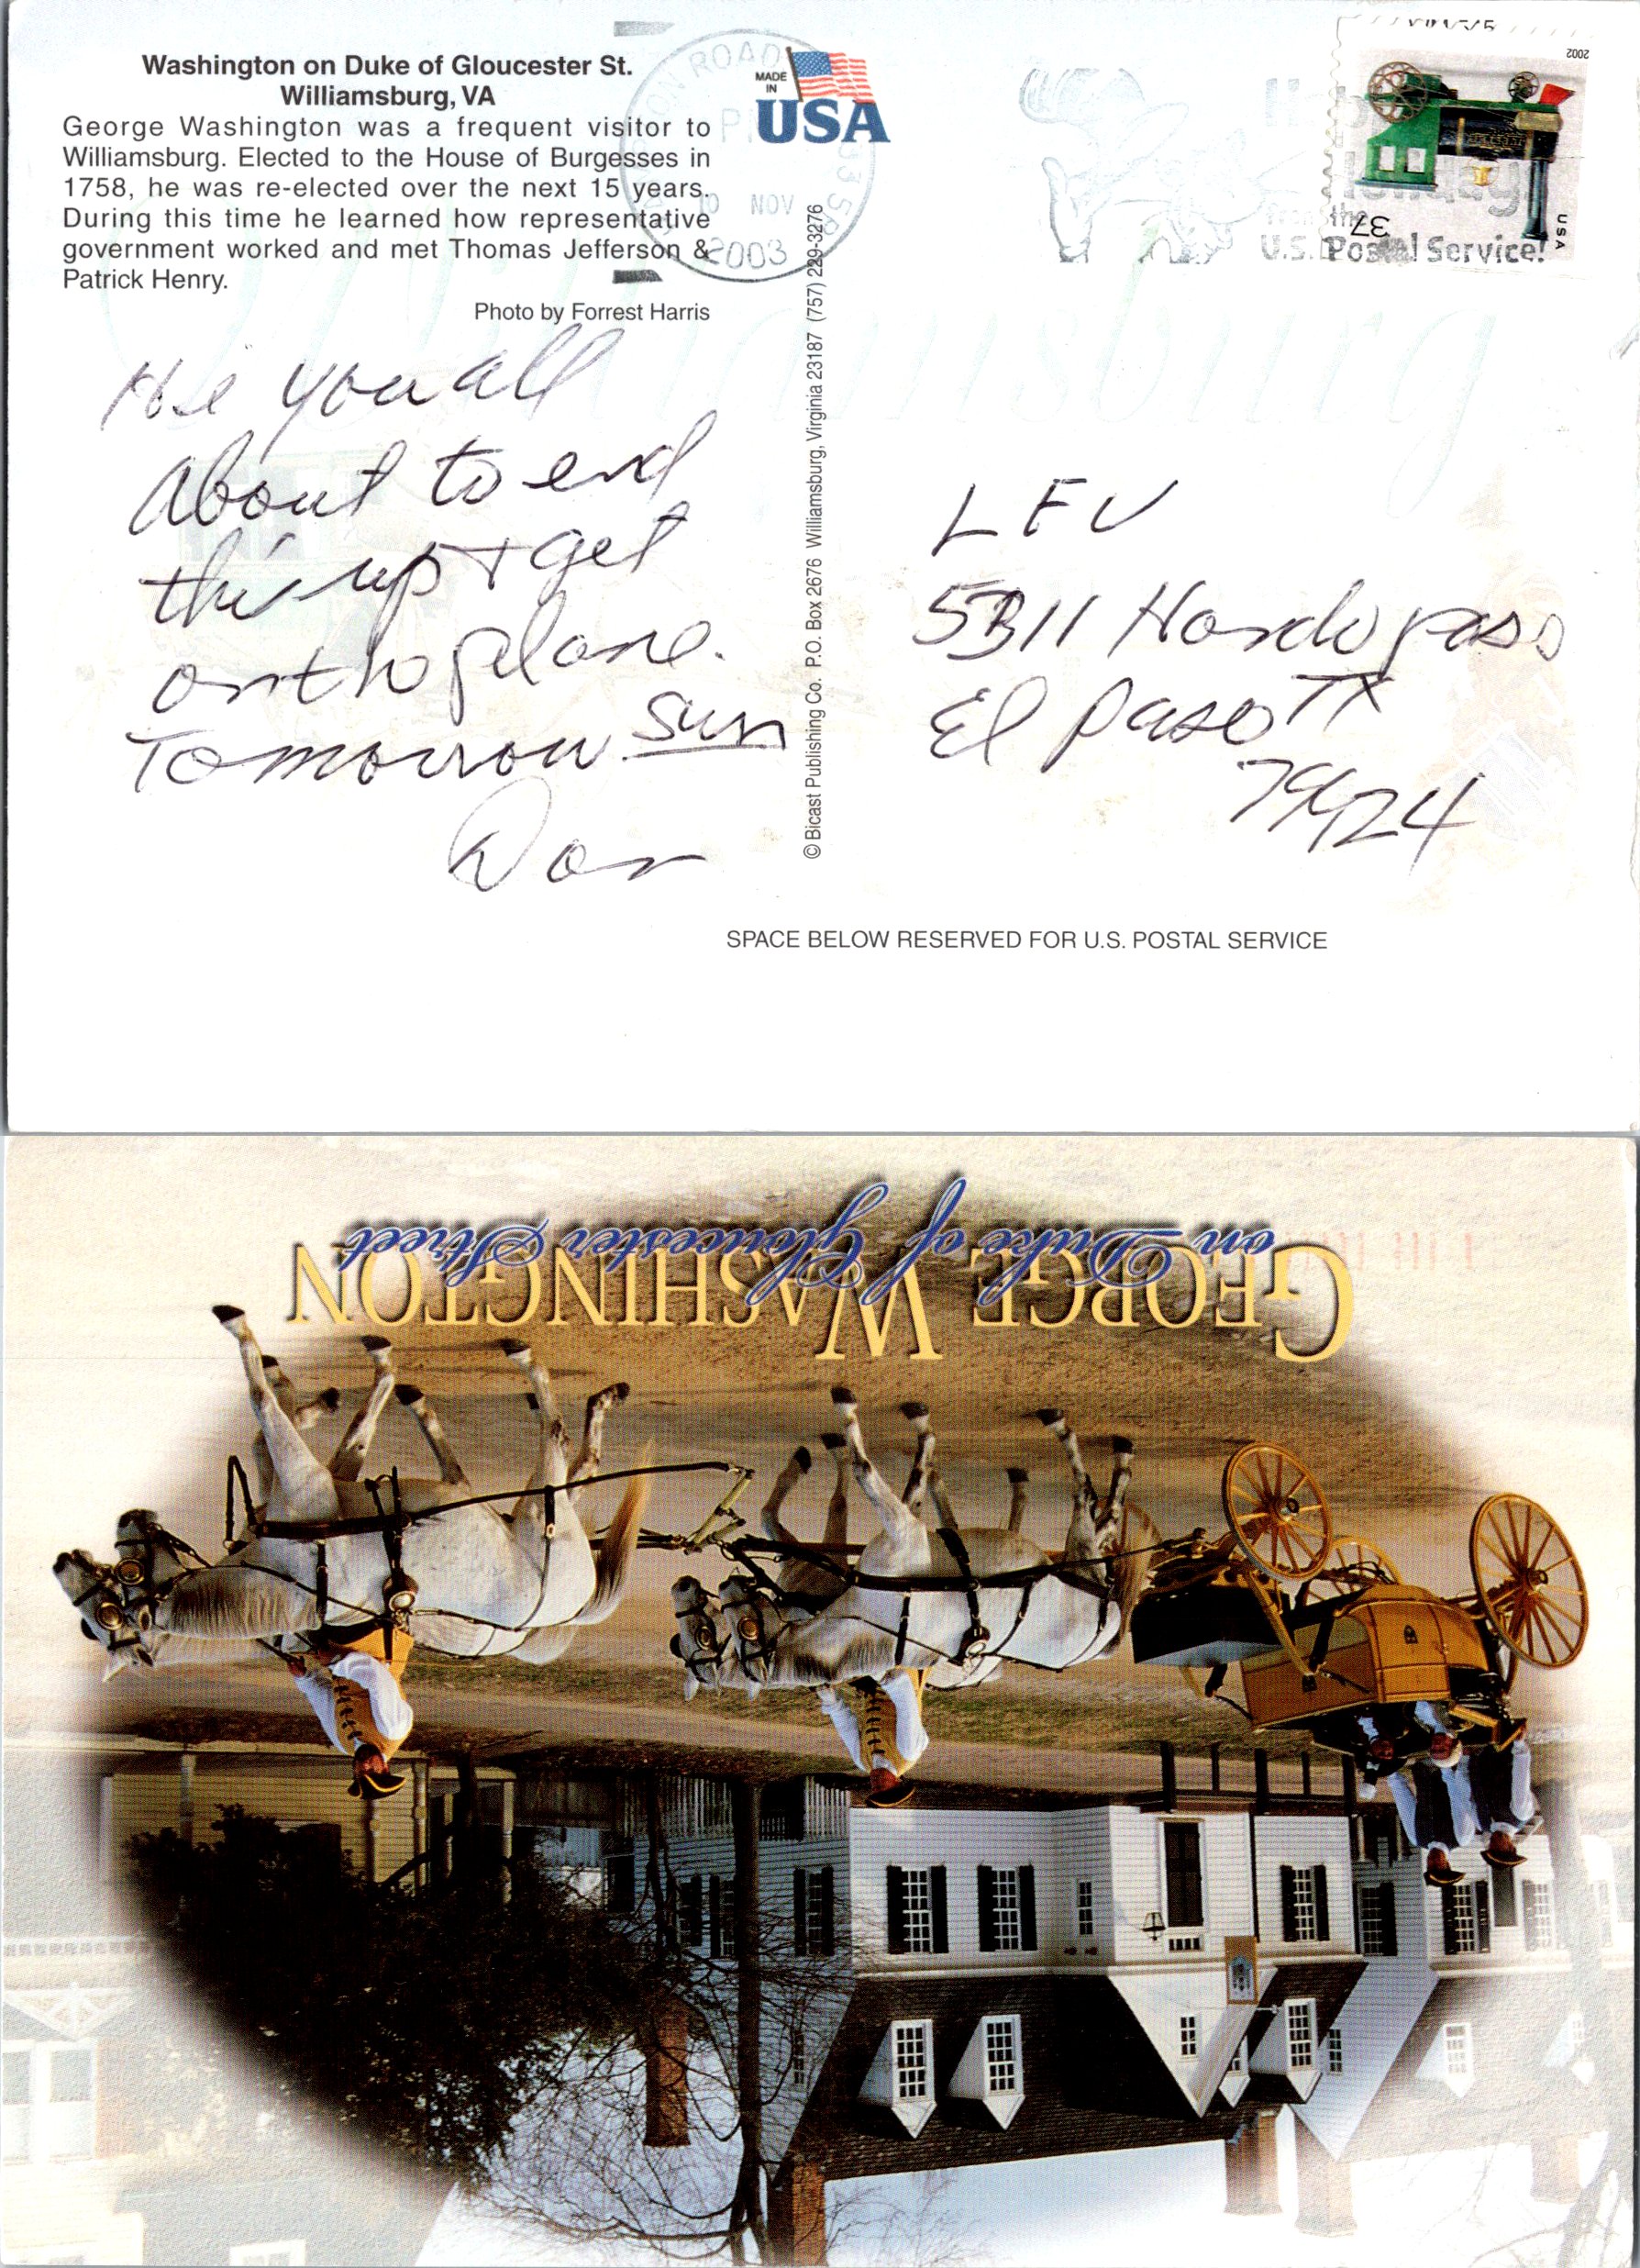 Washington on Duke of Gloucester St.
Williamsburg, VA
George Washington was a frequent visitor to
Williamsburg. Elected to the House of Burgesses in
1758, he was re-elected over the next 15 years.
During this time he learned how representative
government worked and met Thomas Jefferson &
Patrick Henry.
Photo by Forrest Harris
MADE
IN
USA
10 NOV
2003
2002
37
USA
from the
U.S. Postal Service!
you all
About to end
this up + get
on the plane.
Tomorrow Sun
Don
© Bicast Publishing Co. P.O. Box 2676 Williamsburg, Virginia 23187 (757) 229-3276
LFU
5311 Hondo pass
El Paso TX
79924
SPACE BELOW RESERVED FOR U.S. POSTAL SERVICE
GEORGE WASHINGTON
on Duke of Gloucester Street